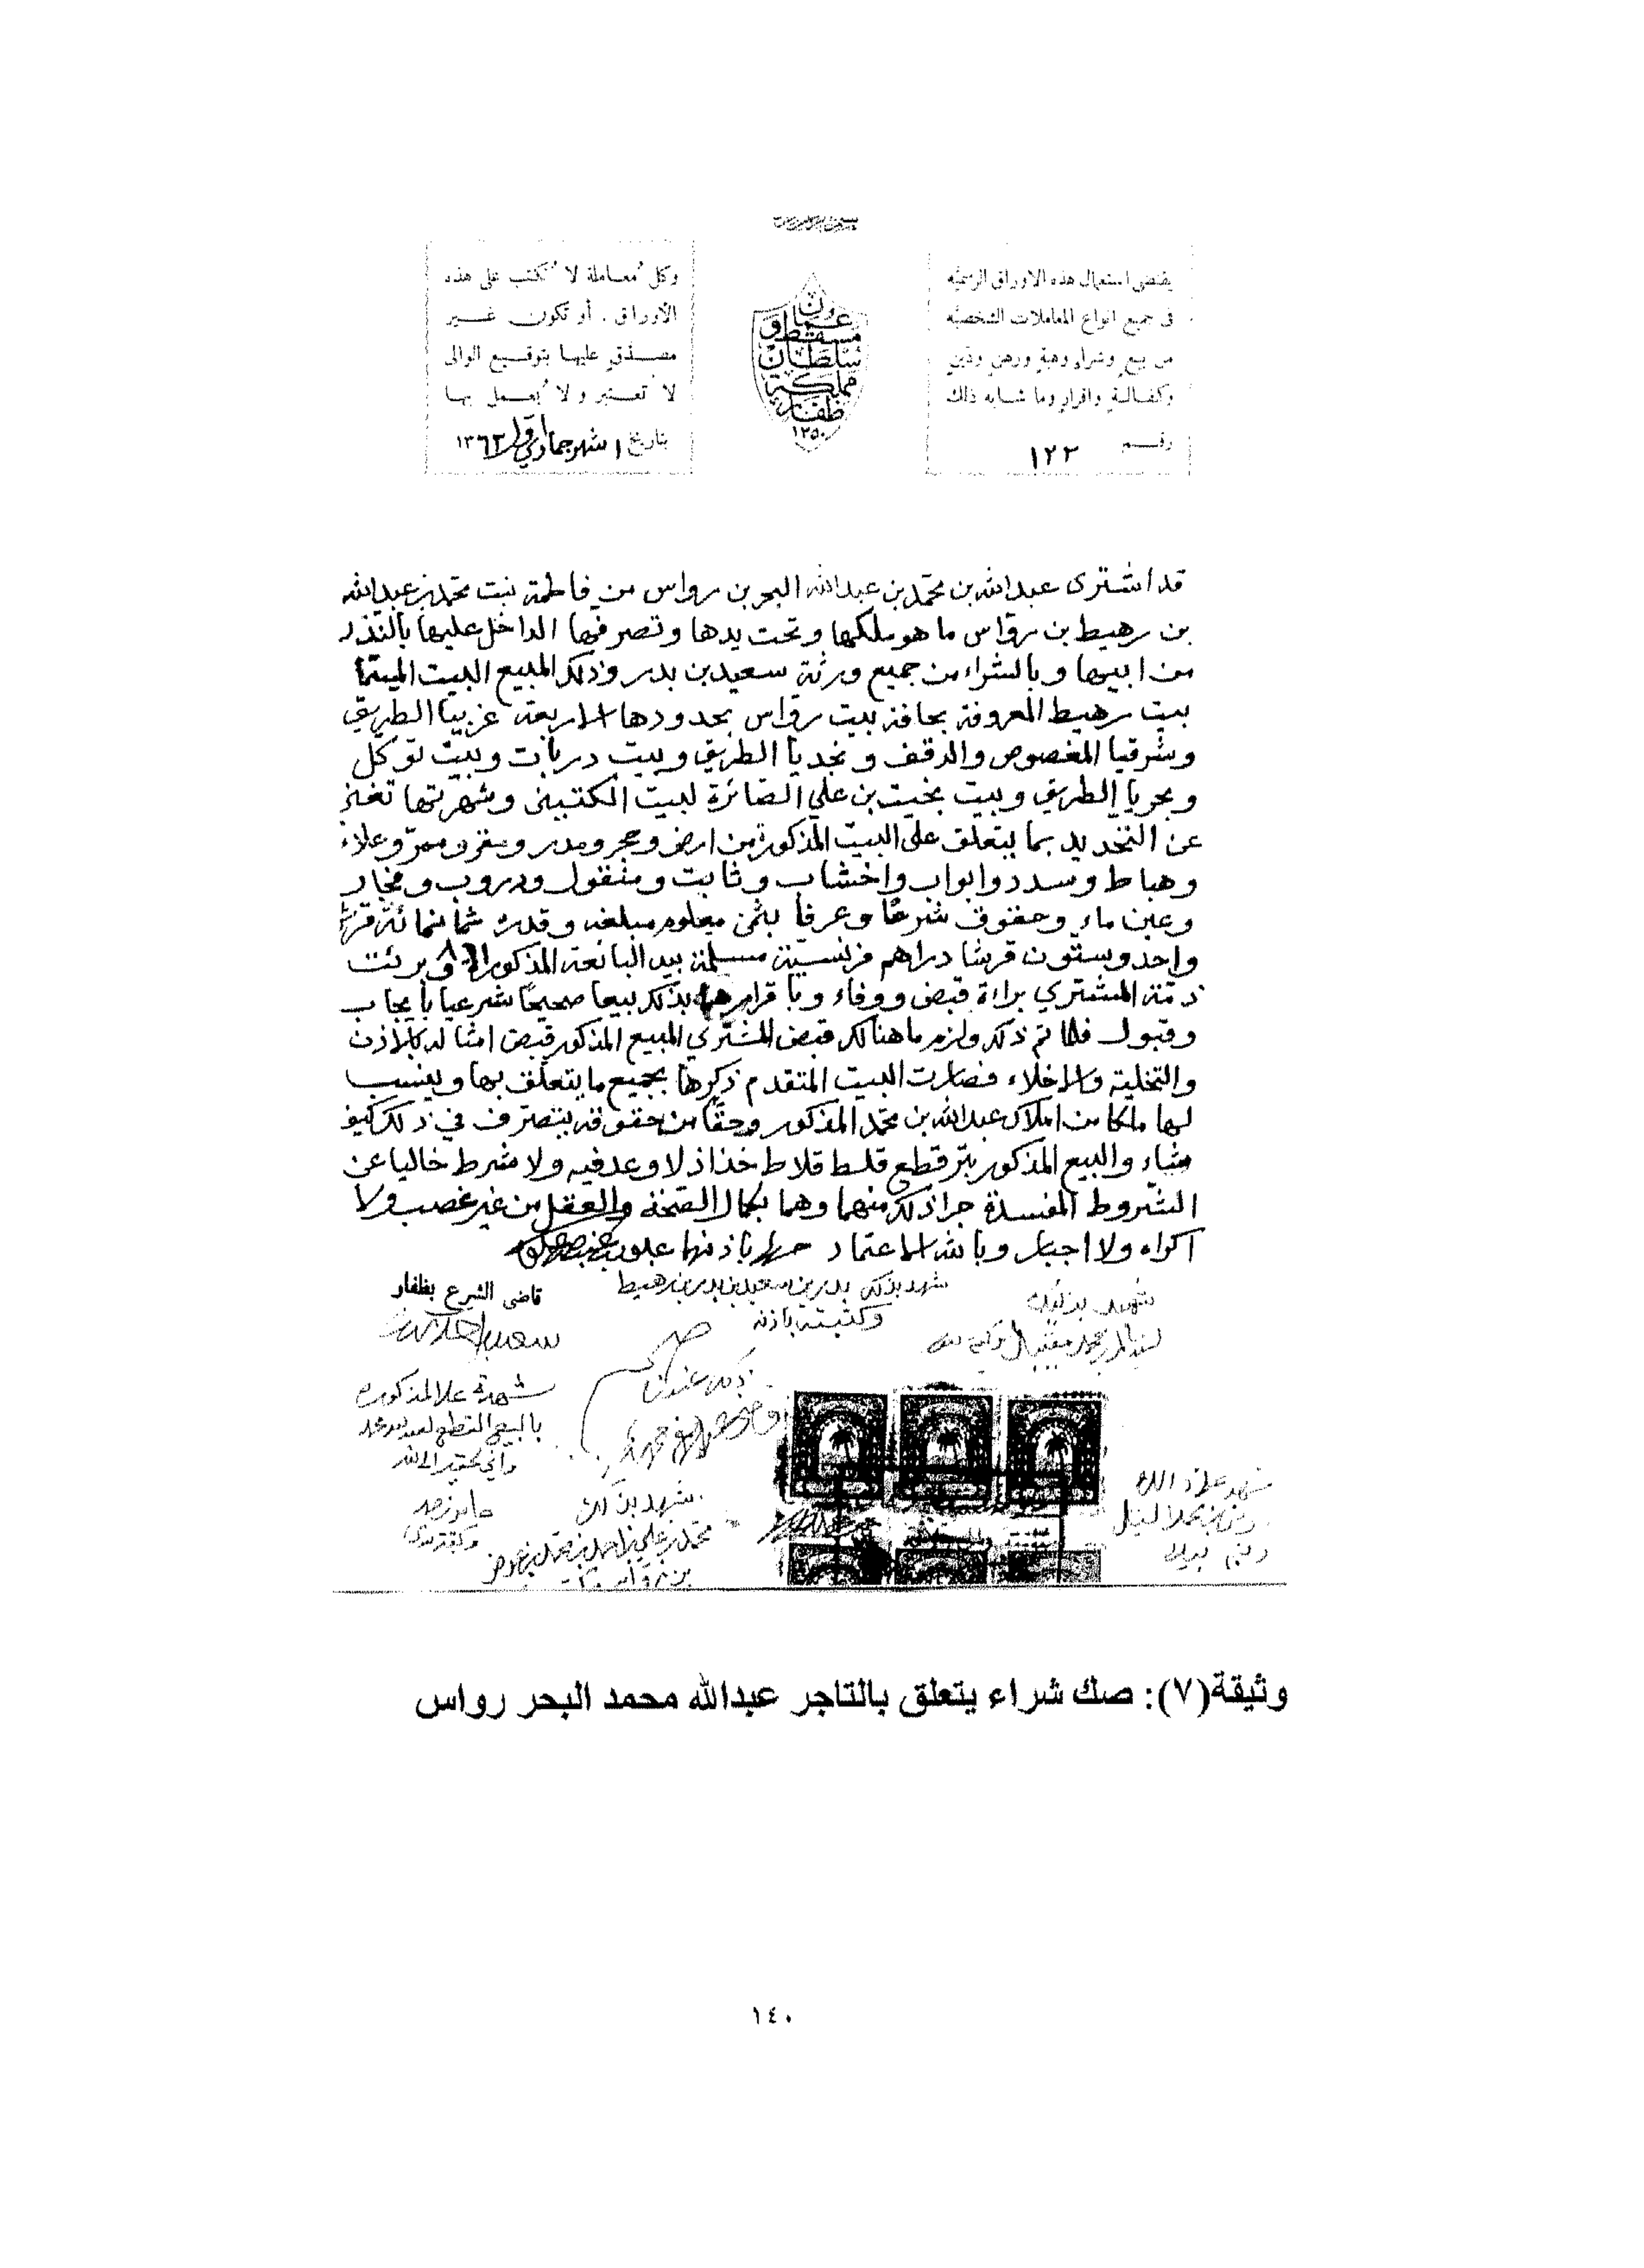 يقتضى استعمال هذه الاوراق الرسميّه
فى جميع انواع المعاملات الشخصيّه
من بيعٍ وشراءٍ وهبةٍ ورهنٍ ودَينٍ
وكفالةٍ واقرارٍ وما شابه ذاك
رقم ١٢٢
عمان
مسقط و
سلطان
مملكة
ظفار
١٣٥٠
وكل مُعاملة لا تُكتب على هذه
الأوراق . أو تكون غير
مصدّقٍ عليها بتوقيع الوالى
لا تعتبر ولا يُعمل بها
بتاريخ ١ شهر جمادي ١٣٦٢
قد اشترى عبدالله بن محمد بن عبدالله البحر بن رواس من فاطمة بنت محمد بن عبدالله
بن رهيط بن رواس ما هو ملكها وتحت يدها وتصرفها الداخل عليها بالنذر
من ابيها وبالشراء من جميع ورثة سعيد بن بدر وذلك المبيع البيت المسمّا
بيت رهيط المعروفة بحافة بيت رواس بحدودها الاربعة غربيا الطريق
وشرقيا المغصوص والوقف ونجديا الطريق وبيت دربات وبيت توكل
وبحريا الطريق وبيت بخيت بن علي الصائرة لبيت الكتبيني وشهرتها تغني
عن التحديد بما يتعلق على البيت المذكورة من ارض وحجر ومدر ومقر وممرّ وعلاء
وهباط وسدد وابواب واخشاب وثابت ومنقول ودروب ومجار
وعين ماء وحقوق شرعًا وعرفا بثمن معلوم مبلغه وقدره ثمانمائة قرش
واحد وستّون قرشا دراهم فرنسيّة مسلمة بيد البائعة المذكورة وبرئت
ذمّة المشتري براءة قبض ووفاء وباقرارها بذلك بيعا صحيحًا شرعيا بايجاب
وقبول فلمّا تم ذلك ولزم ما هنالك قبض المشتري المبيع المذكور قبض امثاله بالاذن
والتخلية والاخلاء فصارت البيت المتقدم ذكرها بجميع ما يتعلّق بها وينسب
لها ملكا من املاك عبدالله بن محمد المذكور وحقّا من حقوقه يتصرف في ذلك كيف
شاء والبيع المذكور بتر قطع قلط قلاط خذاذ لا وعد فيه ولا شرط خاليا عن
الشروط المفسدة جرا ذلك منهما وهما بكمال الصّحة والعقل من غير غصب ولا
اكراه ولا اجبار وبالله الاعتماد حرر باذنها
شهد بذلك بدر بن سعيد بن بدر بن رهيط
وكتبته باذنه
قاضى الشرع بظفار
شهد بذلك
شهدة علا المذكوره
بالبيع القطع لعبدالله محمد
شهد بذلك
محمد بن علي بن احمد بن محمد بن عوض
بن رواس
وثيقة(٧): صك شراء يتعلق بالتاجر عبدالله محمد البحر رواس
١٤٠